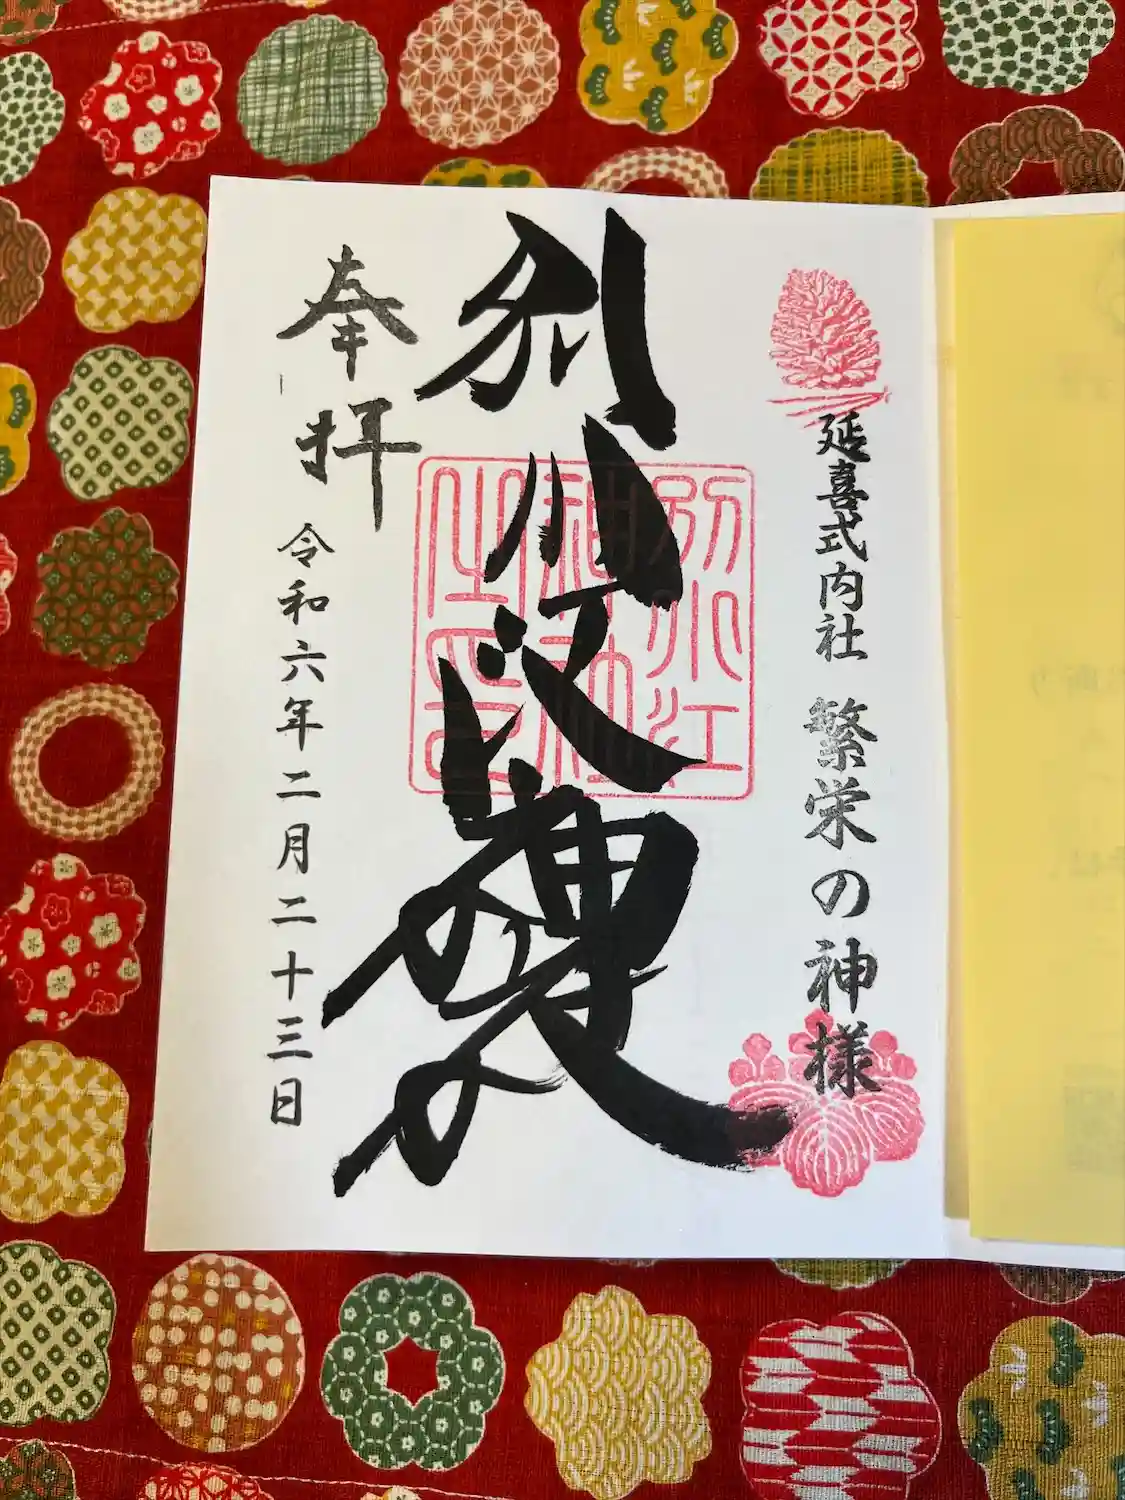 延喜式内社 繁栄の神様
別小江神社
別小江
神社
之印
奉拝
令和六年二月二十三日